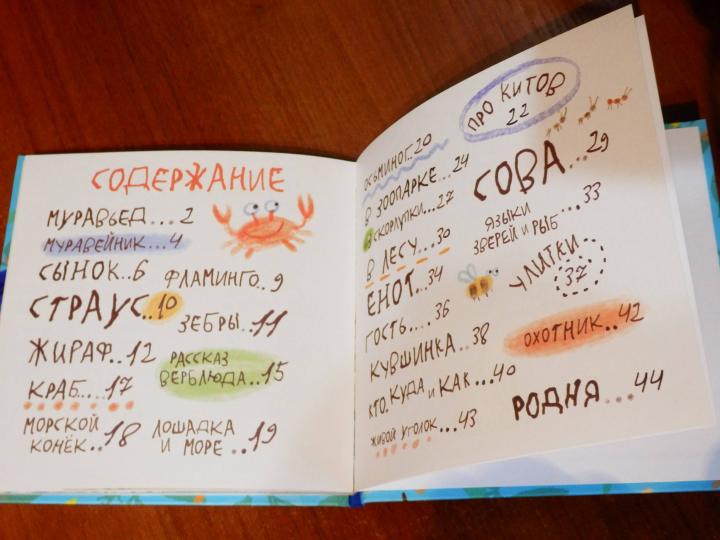 СОДЕРЖАНИЕ
МУРАВЬЕД....2
МУРАВЕЙНИК....4
СЫНОК..6
ФЛАМИНГО..9
СТРАУС..10
ЗЕБРЫ...11
ЖИРАФ..12
РАССКАЗ
ВЕРБЛЮДА..15
КРАБ.....17
МОРСКОЙ
КОНЁК..18
ЛОШАДКА
И МОРЕ ..19
ПРО КИТОВ
22
ОСЬМИНОГ..20
В ЗООПАРКЕ...24
СКОРЛУПКИ...27
СОВА...29
В ЛЕСУ...30
ЯЗЫКИ
ЗВЕРЕЙ И РЫБ....33
ЕНОТ...34
УЛИТКИ
37
ГОСТЬ.... 36
КУВШИНКА..38
ОХОТНИК..42
КТО, КУДА и КАК...40
ЖИВОЙ УГОЛОК...43
РОДНЯ....44